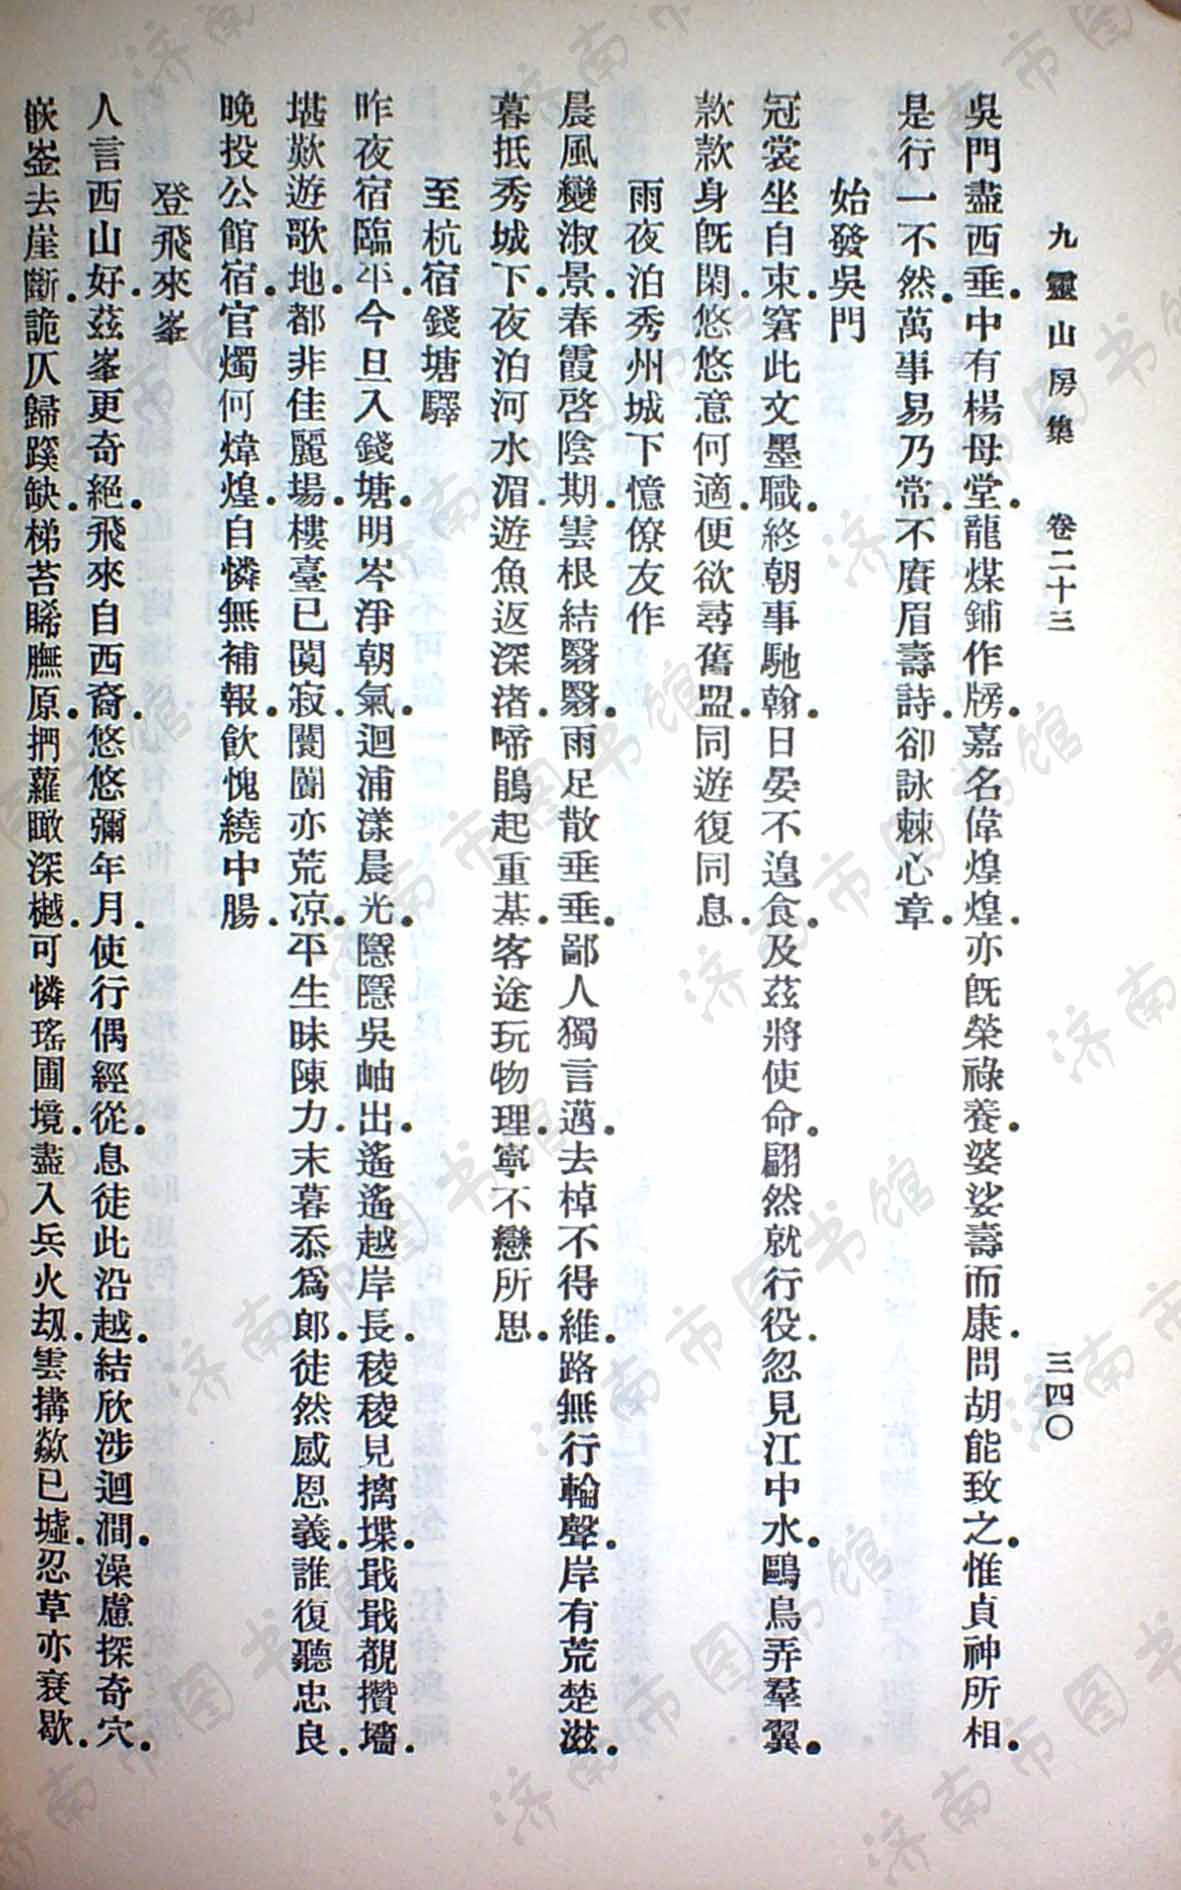 九靈山房集　卷二十三　三四〇
吳門盡西垂中有楊母堂龍煤鋪作牓嘉名偉煌煌亦旣榮祿養婆娑壽而康問胡能致之惟貞神所相
是行一不然萬事易乃常不賡眉壽詩卻詠棘心章
始發吳門
冠裳坐自束窘此文墨職終朝事馳翰日晏不遑食及茲將使命翩然就行役忽見江中水鷗鳥弄羣翼
款款身旣閑悠悠意何適便欲尋舊盟同遊復同息
雨夜泊秀州城下憶僚友作
晨風變淑景春霞啓陰期雲根結翳翳雨足散垂垂鄙人獨言邁去棹不得維路無行輪聲岸有荒楚滋
暮抵秀城下夜泊河水湄遊魚返深渚啼鵑起重基客途玩物理寧不戀所思
至杭宿錢塘驛
昨夜宿臨平今旦入錢塘明岑淨朝氣迴浦漾晨光隱隱吳岫出遙遙越岸長稜稜見摛堞戢戢覩攢墻
堪歎遊歌地都非佳麗場樓臺已閴寂闤闠亦荒涼平生昧陳力末暮忝爲郞徒然感恩義誰復聽忠良
晚投公館宿官燭何煒煌自憐無補報飮愧繞中腸
登飛來峯
人言西山好茲峯更奇絕飛來自西裔悠悠彌年月使行偶經從息徒此沿越結欣涉迴澗澡慮探奇穴
嵌崟去崖斷詭仄歸蹊缺梯苔睎膴原捫蘿瞰深樾可憐瑤圃境盡入兵火刼雲搆歘已墟忍草亦衰歇